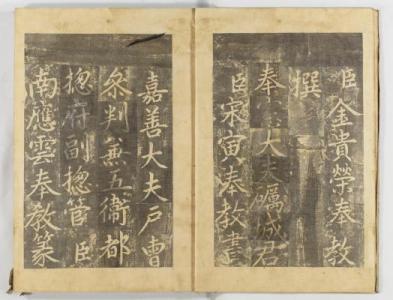 臣金貴榮奉教
撰
奉憲大夫礪城君
臣宋寅奉教書
嘉善大夫戶曹
叅判兼五衛都
摠府副摠管臣
南應雲奉教篆